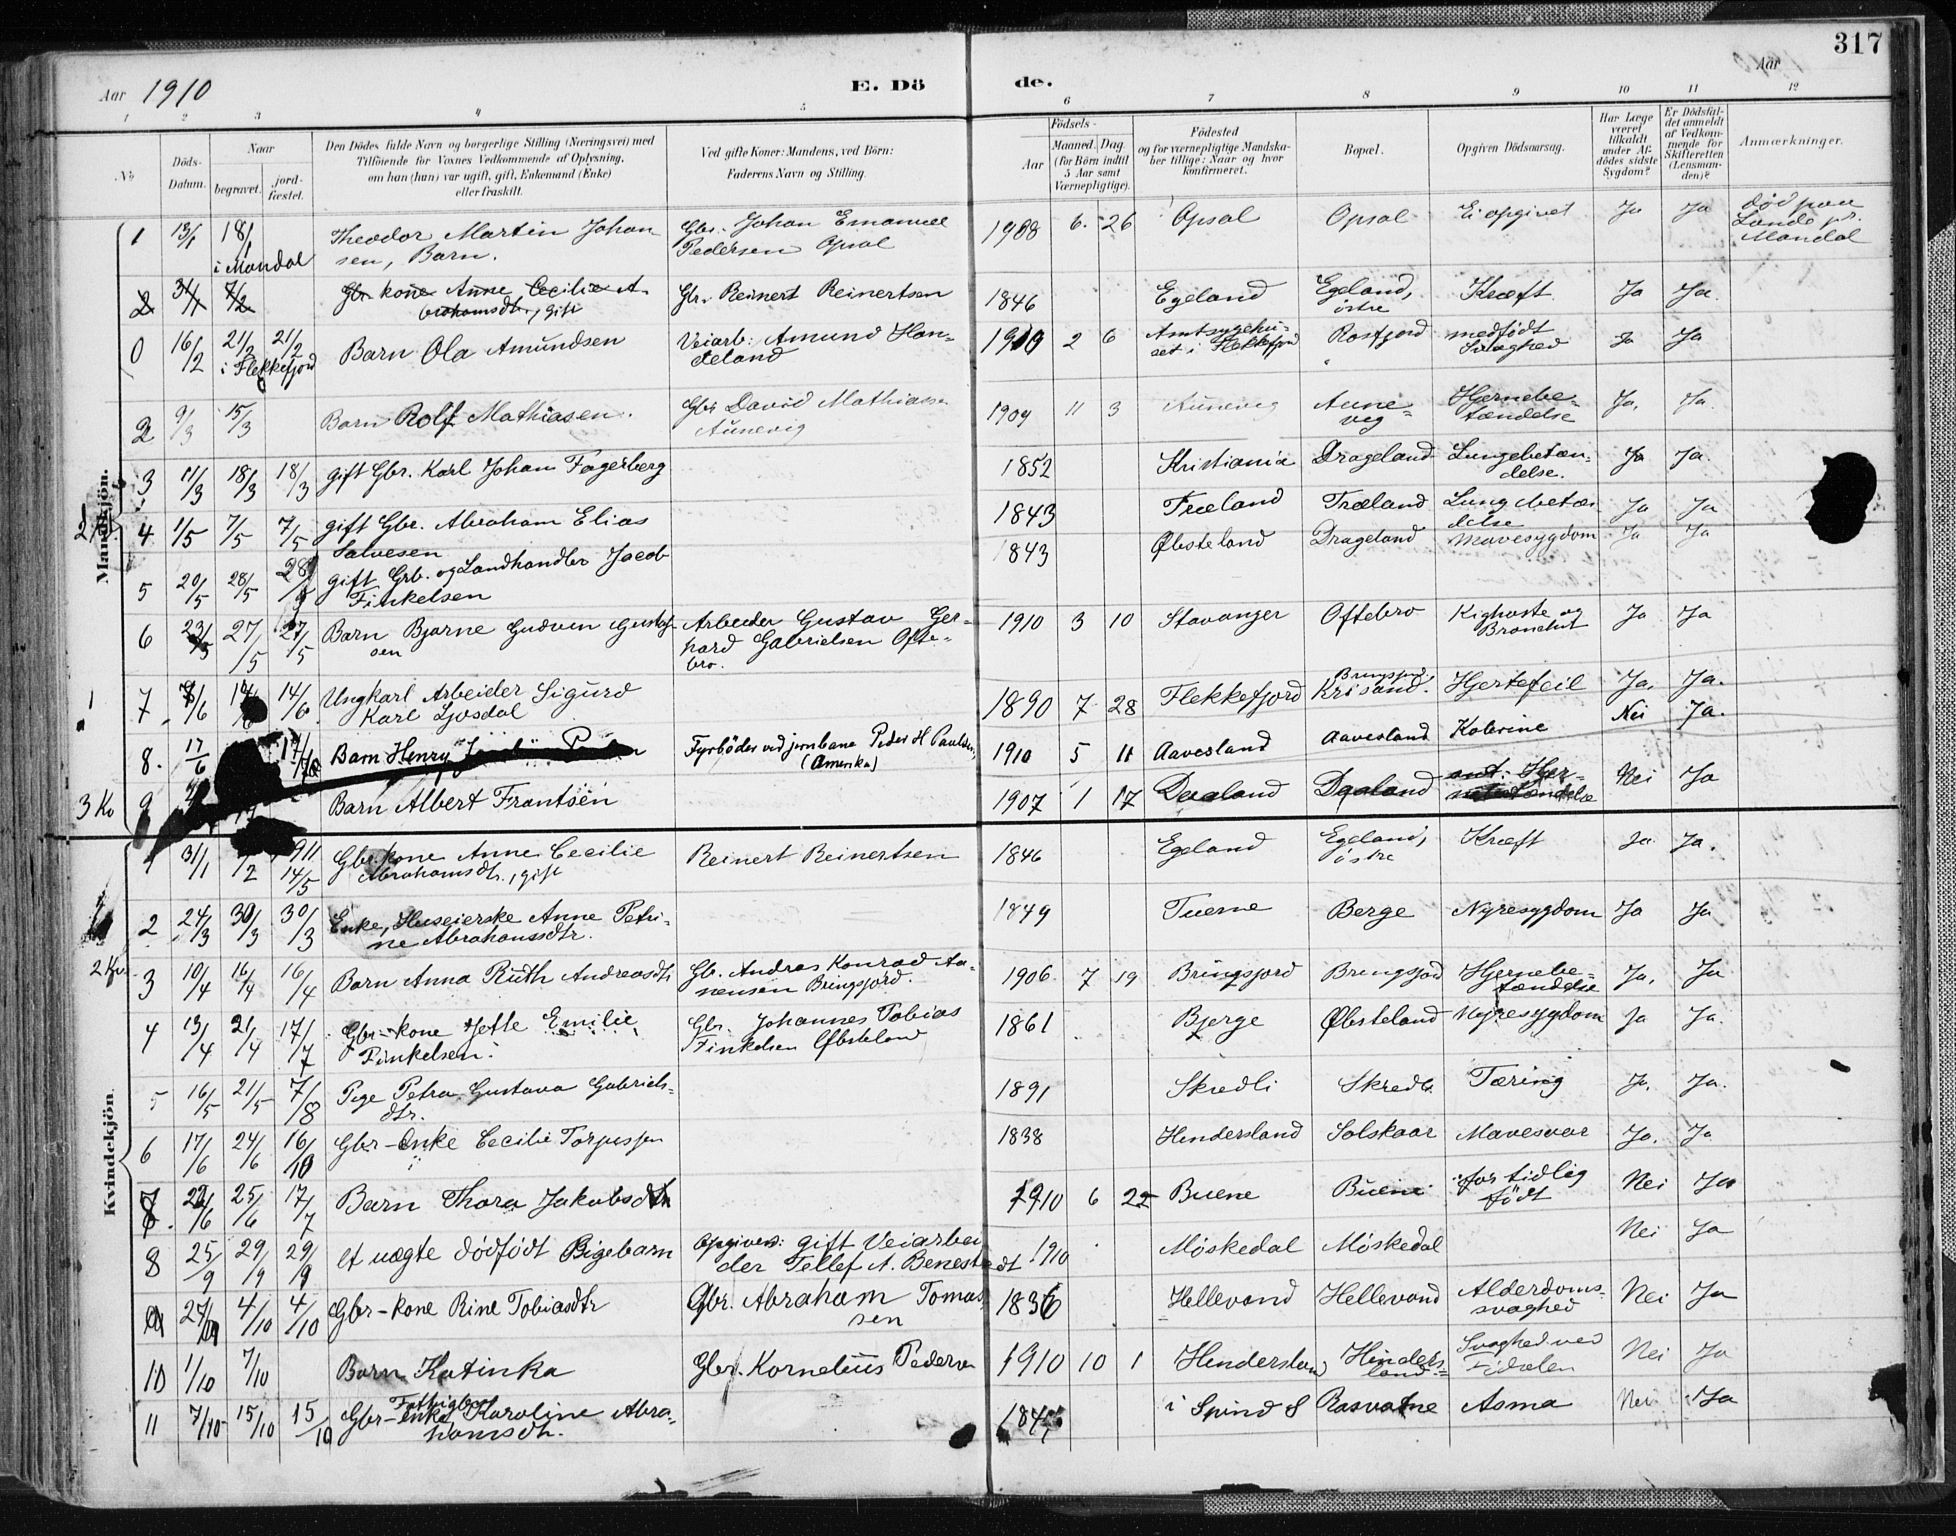 317
Aar 1910
E. Döde.
Aar
1 2 3 4 5 6 7 8 9 10 11 12
№
Döds-Datum.
Naar
begravet.
jord-fæstet.
Den Dödes fulde Navn og borgerlige Stilling (Næringsvei) med
Tilföiende for Voxnes Vedkommende af Oplysning,
om han (hun) var ugift, gift, Enkemand (Enke)
eller fraskilt.
Ved gifte Koner: Mandens, ved Börn:
Faderens Navn og Stilling.
Födsels-
Aar
Maaned. Dag.
(for Börn indtil
5 Aar samt
Værnepligtige).
Födested
og for værnepligtige Mandska-
ber tillige: Naar og hvor
konfirmeret.
Bopæl.
Opgiven Dödsaarsag.
Har Læge
været
tilkaldt
under Af-
dödes sidste
Sygdom?
Er Dödsfal-
det anmeldt
af Vedkom-
mende for
Skifteretten
(Lensman-
den)?
Anmærkninger.
Mandkjön.
1 13/1 18/1 i Mandal Theodor Martin Johansen, Barn. Gbr. Johan Emanuel Pedersen Opsal 1908 6. 26 Opsal Opsal Ei opgivet Ja Ja død paa Lande pr. Mandal
2 31/1 7/2 Gbr. kone Anne Cecilie Abrahamsdtr., gift Gbr. Reinert Reinertsen 1846 Egeland Egeland, østre Kræft Ja Ja.
0 16/2 21/2 21/2 i Flekkefjord Barn Ola Amundsen Veiarb: Amund Handeland 1910 2 6 Amtssygehuset i Flekkefjord Rosfjord medfødt Svaghed Ja Ja
2 9/3 15/3 Barn Rolf Mathiasen. Gbr David Mathiassen Aunevig 1909 11 3 Aunevig Aunevig Hjernebetændelse Ja, Ja
3 11/3 18/3 18/3 gift Gbr. Karl Johan Fagerberg 1852 Kristiania Drageland Lungebetændelse. Ja Ja.
4 1/5 7/5 7/5 gift Gbr. Abraham Elias Salvesen 1843 Træland Træland Lungebetændelse Ja Ja
5 20/5 28/5 28/5 gift Grb. og Landhandler Jacob Finkelsen 1843 Øbsteland Drageland Mavesygdom Ja Ja
6 23/5 27/5 27/5 Barn Bjarne Gudven Gustafsen Arbeider Gustav Gerhard Gabrielsen Oftebro. 1910 3 10 Stavanger Oftebro Kighoste og Bronchit Ja Ja
1
7 7/6 14/6 14/6 Ungkarl Arbeider Sigurd Karl Ljosdal 1890 7 28 Flekkefjord Krisand. Hjertefeil Ja, Ja.
8. 17/6 Barn Henry Fyrbøder ved jernbane Peder H Paulsen, (Amerika) 1910 5 11 Aavesland Aavesland Kolerine Nei Ja.
3 Ko
9 Barn Albert Frantsen 1907 1 17 Daaland Daaland Nei Ja
Kvindekjön
1 31/1 7/2 1911 14/5 Gbr kone Anne Cecilie Abrahamsdtr., gift Reinert Reinertsen 1846 Egeland Egeland, østre Kræft Ja Ja.
2 24/3 30/3 30/3 Enke, Huseierske Anne Petrine Abrahamsdtr. 1849 Tuerne Berge Nyresygdom Ja Ja
2 Kv.
3 10/4 16/4 16/4 Barn Anna Ruth Andreasdtr Gb. Andras Konrad Aanensen Bringsjord. 1906 7 19 Bringsjord Bringsjord Hjernebetændelse Ja, Ja
4 13/4 21/4 17/7 Gbr-kone Jette Emilie Finkelsen. Gbr. Johannes Tobias Finkelsen Øbsteland 1861 Bjerge Øbsteland Nyresygdom Ja Ja.
5 16/5 21/5 7/8 Pige Petra Gustava Gabrielsdtr. 1891 Skredli Skredli Tæring Ja. Ja.
6 17/6 24/6 16/10 Gbr-Enke Cecilie Torjussen 1838 Hindersland Solskaar Mavesvar Ja. Ja
7 22/6 25/6 17/7 Barn Thora Jakobsdtr 1910 6 22 Buene Buene for tidlig født Nei Ja
8 25/9 29/9 29/9 et uægte dødfødt Pigebarn Opgiven: gift Veiarbeider Tellef A. Benestvedt 1910 Møskedal Møskedal Nei Ja
9 27/9 4/10 4/10 Gbr-kone Rine Tobiasdtr Gbr. Abraham Tomassen 1836 Hellevand Hellevand Alderdomssvaghed Nei Ja
10 1/10 7/10 Barn Katinka Gbr. Kornelius Pedersen 1910 10 1 Hindersland Hindersland Svaghed ved Fødselen Nei Ja
11 7/10 15/10 15/10 Gbr-enke Karoline Abrahamsdtr. i Spind S Rosvatne Asma Nei Ja